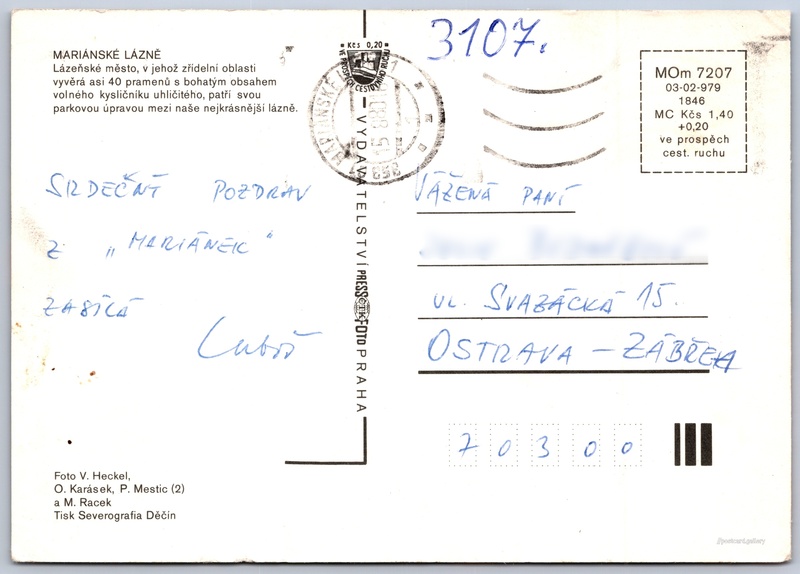 MARIÁNSKÉ LÁZNĚ
Lázeňské město, v jehož zřídelní oblasti
vyvěrá asi 40 pramenů s bohatým obsahem
volného kysličníku uhličitého, patří svou
parkovou úpravou mezi naše nejkrásnější lázně.
SRDEČNÝ POZDRAV
Z „MARIÁNEK"
ZASÍLÁ
Luboš
Foto V. Heckel,
O. Karásek, P. Mestic (2)
a M. Racek
Tisk Severografia Děčín
Kčs 0,20
VE PROSPĚCH CESTOVNÍHO RUCHU
VYDAVATELSTVÍ PRESSFOTO PRAHA
3107.
MOm 7207
03-02-979
1846
MC Kčs 1,40
+0,20
ve prospěch
cest. ruchu
VÁŽENÁ PANÍ
UL. SVAZÁCKÁ 15.
OSTRAVA – ZÁBŘEH
70300
//postcard.gallery